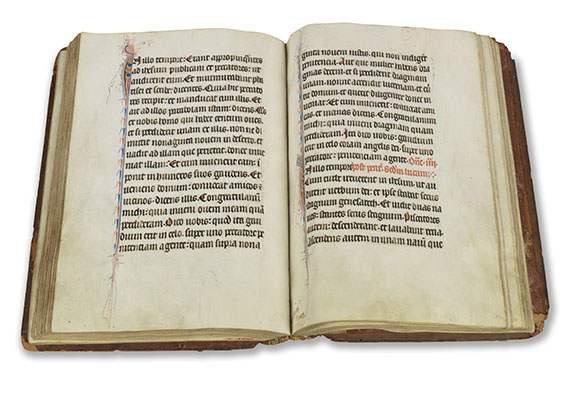 In illo tempore: Erant appropinquãtes
ad ihesum publicani et peccatores: ut
audirent illum. Et murmurabant pha
risei et scribe: dicentes. Quia hic peccato
res recipit: et manducat cum illis. Et
ait ad illos parabolam istam: dicens. Quis
ex vobis homo qui habet centum oves:
et si perdiderit unam ex illis. non ne di
mittit nonaginta novem in deserto. et
vadit ad illam que perierat: donec inve
niat illam: Et cum invenerit eum: i
ponit in humeros suos gaudens. Et
veniens domum: convocat amicos &
vicinos. dicens illis. Congratulamini
michi: quia inveni ovem meam que
perdideram. Dico vobis: quod ita gau
dium erit in celo. super uno peccatore pe
nitenciam agente: quam supra nona
ginta novem iustis. qui non indigent
penitencia. Aut que mulier habens dra
gmas decem. et si perdiderit dragmam
domum. et querit diligenter donec in
veniat. Et cum invenerit: convocat
amicas et vicinas dicens. Congratulamini
michi: quia inveni dragmam quam
perdideram. Ita dico vobis: gaudium
erit in celo coram angelis dei: super uno
peccatore: penitenciam agente. Dñc. iiij.
In illo tempore: post pent. scdm lucam:
Cum turbe irruerent in ihesum. ut au
dirent verbum dei: et ipse stabat secus
stagnum genesareth. Et vidit duas na
ves: stantes secus stagnum. Piscatores
autem: descenderant. et lavabant recia.
Ascendens autem in unam navim que